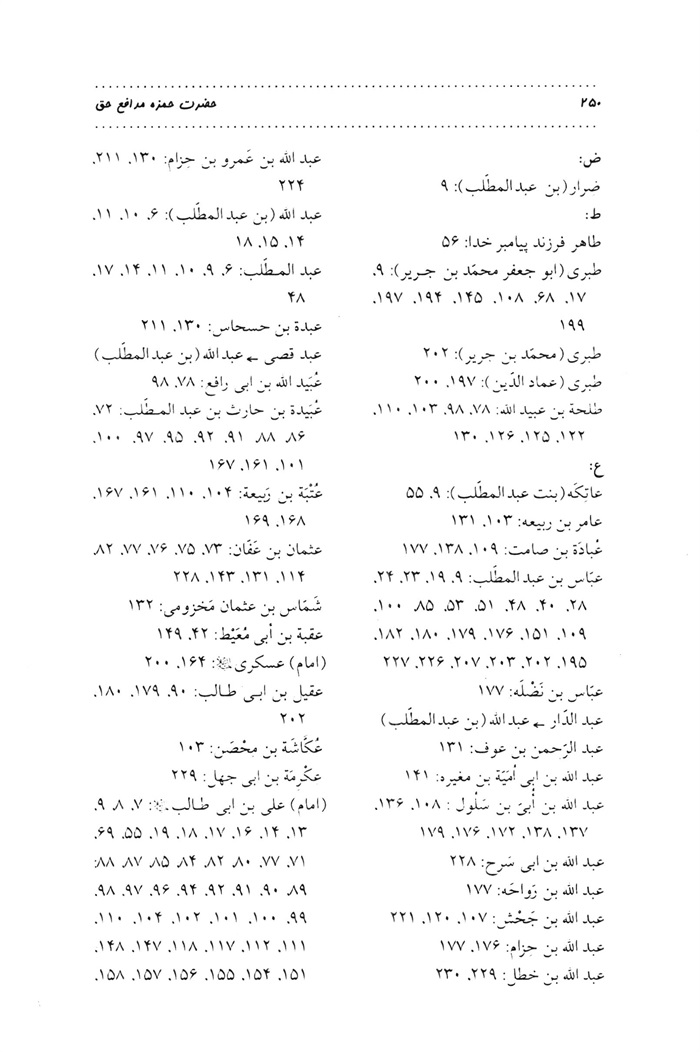 ۲۵۰
حضرت حمزه مدافع حق
ض:
ضرار (بن عبدالمطّلب): ۹
ط:
طاهر فرزند پیامبر خدا: ۵۶
طبری (ابو جعفر محمّد بن جریر): ۹،
۱۷، ۶۸، ۱۰۸، ۱۴۵، ۱۹۴، ۱۹۷،
۱۹۹
طبری (محمّد بن جریر): ۲۰۲
طبری (عماد الدّین): ۱۹۷، ۲۰۰
طلحة بن عبید الله: ۷۸، ۹۸، ۱۰۳، ۱۱۰،
۱۲۲، ۱۲۵، ۱۲۶، ۱۳۰
ع:
عاتِکَه (بنت عبدالمطّلب): ۹، ۵۵
عامر بن ربیعه: ۱۰۳، ۱۳۱
عُبادَة بن صامت: ۱۰۹، ۱۳۸، ۱۷۷
عبّاس بن عبدالمطّلب: ۹، ۱۹، ۲۳، ۲۴،
۲۸، ۴۰، ۴۸، ۵۱، ۵۳، ۸۵، ۱۰۰،
۱۰۹، ۱۵۱، ۱۷۶، ۱۷۹، ۱۸۰، ۱۸۲،
۱۹۵، ۲۰۲، ۲۰۳، ۲۰۷، ۲۲۶، ۲۲۷
عبّاس بن نَضْلَه: ۱۷۷
عبد الدّار ← عبدالله (بن عبدالمطّلب)
عبد الرّحمن بن عوف: ۱۳۱
عبد الله بن ابی اُمَیَّة بن مغیره: ۱۴۱
عبد الله بن اُبیّ بن سَلُول : ۱۰۸، ۱۳۶،
۱۳۷، ۱۳۸، ۱۷۲، ۱۷۶، ۱۷۹
عبد الله بن ابی سَرح: ۲۲۸
عبد الله بن رَواحَه: ۱۷۷
عبد الله بن جَحْش: ۱۰۷، ۱۲۰، ۲۲۱
عبد الله بن حِزام: ۱۷۶، ۱۷۷
عبد الله بن خطل: ۲۲۹، ۲۳۰
عبد الله بن عَمرو بن حِزام: ۱۳۰، ۲۱۱،
۲۲۴
عبد الله (بن عبدالمطّلب): ۶، ۱۰، ۱۱،
۱۴، ۱۵، ۱۸
عبد المطّلب: ۶، ۹، ۱۰، ۱۱، ۱۴، ۱۷،
۴۸
عبدة بن حسحاس: ۱۳۰، ۲۱۱
عبد قصی ← عبدالله (بن عبدالمطّلب)
عُبَید الله بن ابی رافع: ۷۸، ۹۸
عُبَیدة بن حارث بن عبد المطّلب: ۷۲،
۸۶، ۸۸، ۹۱، ۹۲، ۹۵، ۹۷، ۱۰۰،
۱۰۱، ۱۶۱، ۱۶۷
عُتْبَة بن رَبیعة: ۱۰۴، ۱۱۰، ۱۶۱، ۱۶۷،
۱۶۸، ۱۶۹
عثمان بن عَفّان: ۷۳، ۷۵، ۷۶، ۷۷، ۸۲،
۱۱۴، ۱۳۱، ۱۴۳، ۲۲۸
شَمّاس بن عثمان مَخزومی: ۱۳۲
عقبة بن أبی مُعَیْط: ۴۲، ۱۴۹
(امام) عسکری: ۱۶۴، ۲۰۰
عقیل بن ابی طالب: ۹۰، ۱۷۹، ۱۸۰،
۲۰۲
عُکّاشَة بن مِحْصَن: ۱۰۳
عکْرِمَة بن ابی جهل: ۲۲۹
(امام) علی بن ابی طالب: ۷، ۸، ۹،
۱۳، ۱۴، ۱۶، ۱۷، ۱۸، ۱۹، ۵۵، ۶۹،
۷۱، ۷۷، ۸۰، ۸۲، ۸۴، ۸۵، ۸۷، ۸۸،
۸۹، ۹۰، ۹۱، ۹۲، ۹۴، ۹۶، ۹۷، ۹۸،
۹۹، ۱۰۰، ۱۰۱، ۱۰۲، ۱۰۴، ۱۱۰،
۱۱۱، ۱۱۲، ۱۱۷، ۱۱۸، ۱۴۷، ۱۴۸،
۱۵۱، ۱۵۴، ۱۵۵، ۱۵۶، ۱۵۷، ۱۵۸،